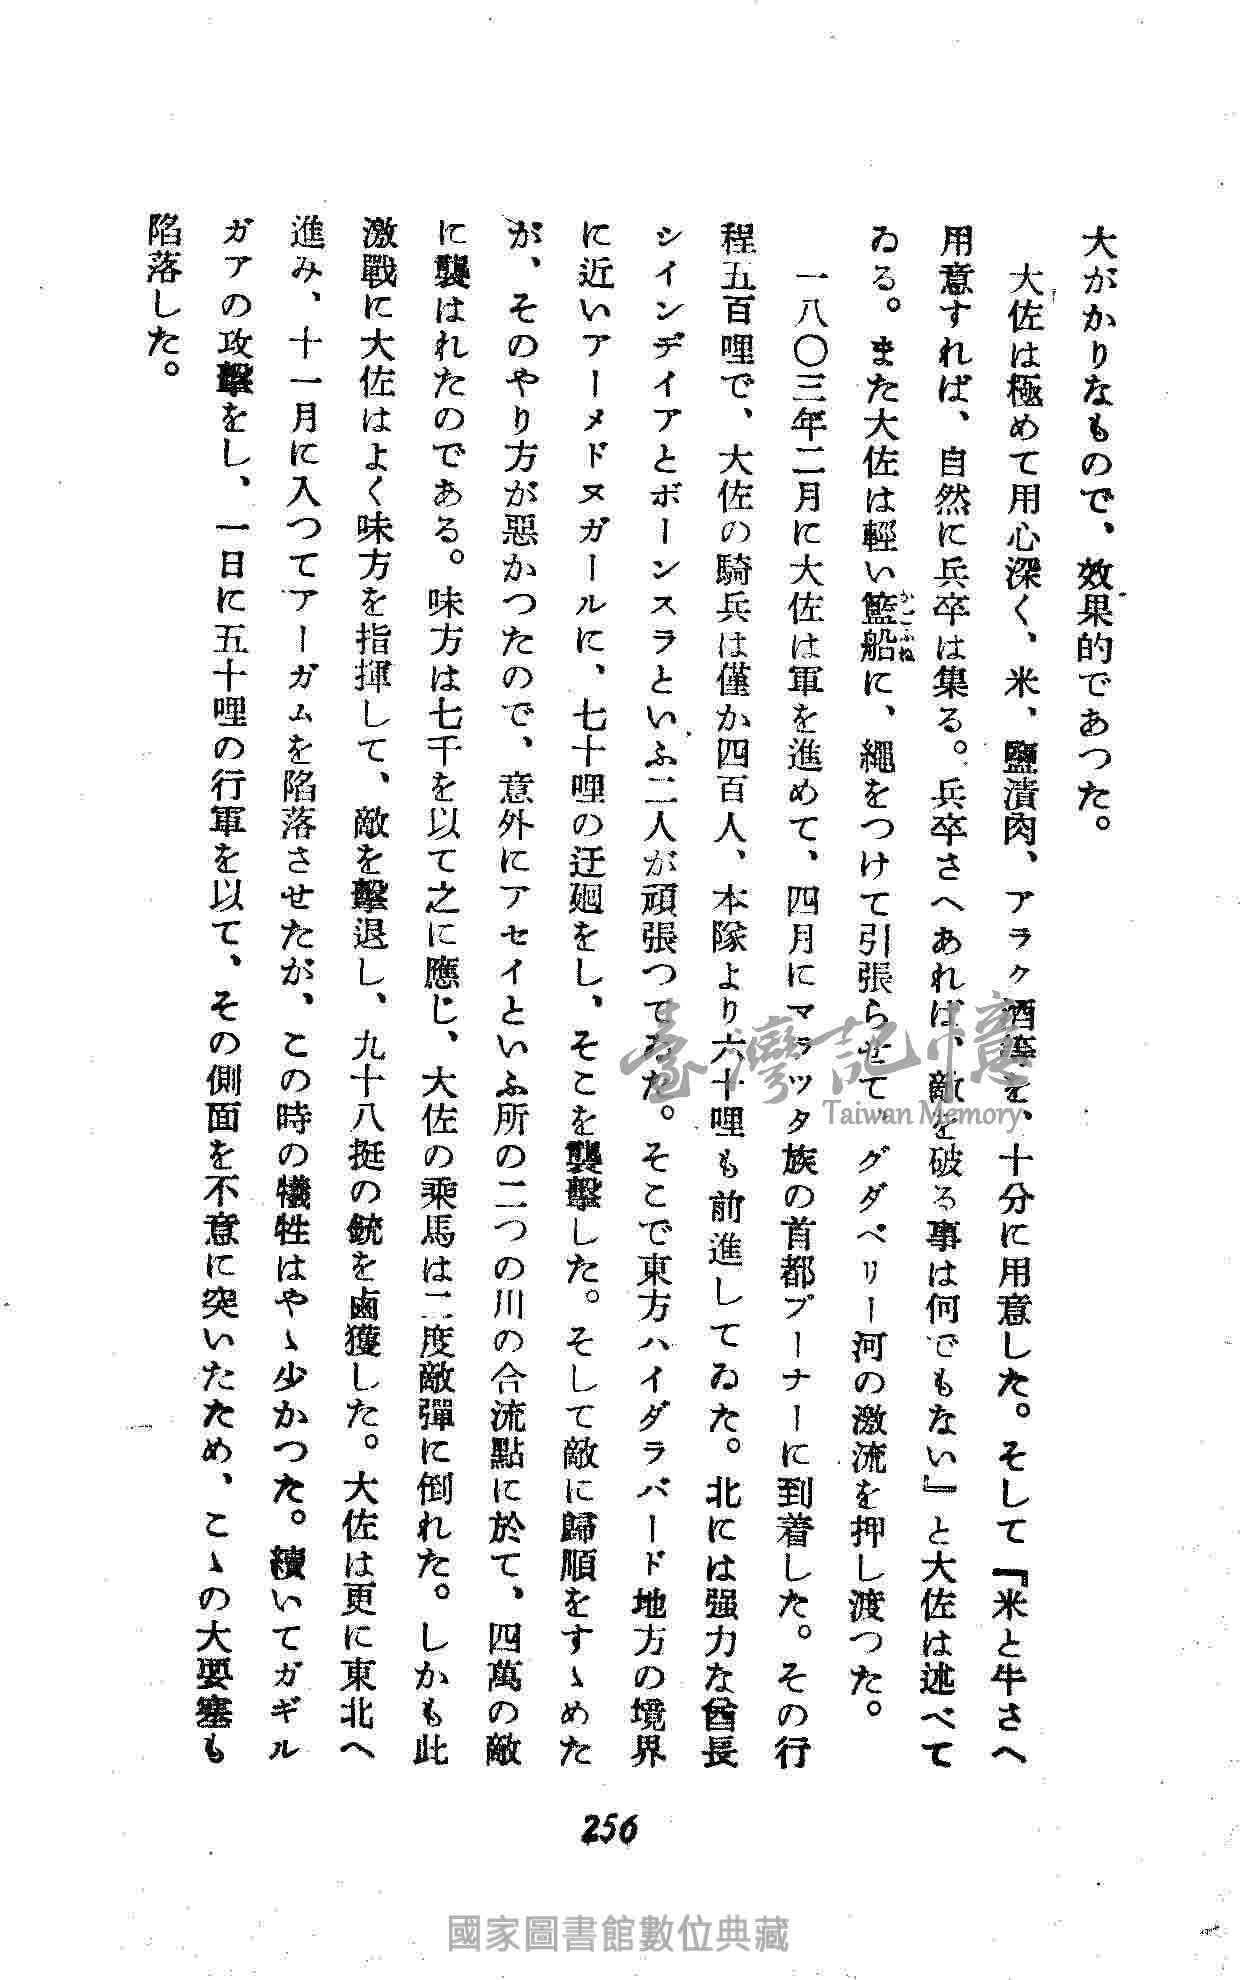 大がかりなもので、效果的であつた。
大佐は極めて用心深く、米、鹽漬肉、アラク酒等を、十分に用意した。そして『米と牛さへ
用意すれば、自然に兵卒は集る。兵卒さへあれば、敵を破る事は何でもない』と大佐は述べて
ゐる。また大佐は輕い籃船に、繩をつけて引張らせて、グダベリー河の激流を押し渡つた。
かごふね
一八〇三年二月に大佐は軍を進めて、四月にマラツタ族の首都プーナーに到着した。その行
程五百哩で、大佐の騎兵は僅か四百人、本隊より六十哩も前進してゐた。北には强力な酋長
シインデイアとボーンスラといふ二人が頑張つてゐた。そこで東方ハイダラバード地方の境界
に近いアーメドヌガールに、七十哩の迂廻をし、そこを襲擊した。そして敵に歸順をすゝめた
が、そのやり方が惡かつたので、意外にアセイといふ所の二つの川の合流點に於て、四萬の敵
に襲はれたのである。味方は七千を以て之に應じ、大佐の乘馬は二度敵彈に倒れた。しかも此
激戰に大佐はよく味方を指揮して、敵を擊退し、九十八挺の銃を鹵獲した。大佐は更に東北へ
進み、十一月に入つてアーガムを陷落させたが、この時の犧牲はやゝ少かつた。續いてガギル
ガアの攻擊をし、一日に五十哩の行軍を以て、その側面を不意に突いたため、こゝの大要塞も
陷落した。
256
臺灣記憶
Taiwan Memory
國家圖書館數位典藏